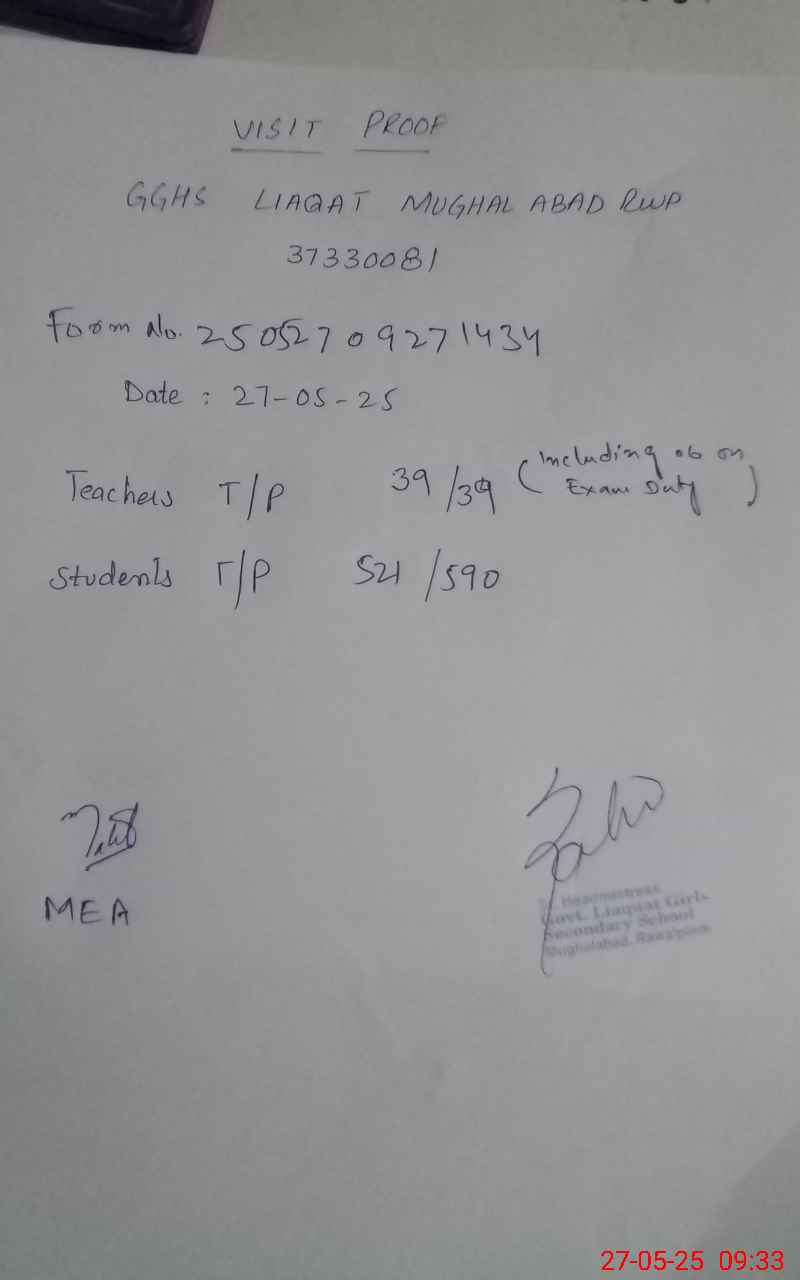 VISIT PROOF
GGHS LIAQAT MUGHAL ABAD RWP
37330081
Form No. 25052709271434
Date : 27-05-25
Teachers T/P 39/39 (Including 06 on Exam Duty)
Students T/P 521/590
MEA
Headmistress
Govt. Liaquat Girls
Secondary School
Mughalabad, Rawalpindi
27-05-25 09:33